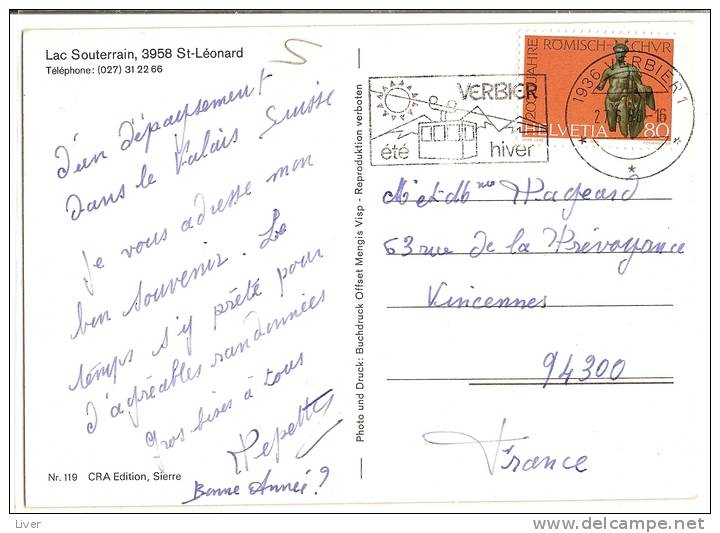 Lac Souterrain, 3958 St-Léonard
Téléphone: (027) 31 22 66
d'un dépaysement
dans le Valais Suisse
je vous adresse mon
bon souvenir. Le
temps s'y prête pour
d'agréables randonnées
Gros bises à tous
Pepette
Bonne Année ?
Nr. 119 CRA Edition, Sierre
Photo und Druck: Buchdruck Offset Mengis Visp - Reproduktion verboten
VERBIER
été hiver
1936 VERBIER 1
-16
2000 JAHRE RÖMISCH-CHUR
HELVETIA 80
M et Mme Hageard
63 rue de la Prévoyance
Vincennes
94300
France
Liver
delcampe.net